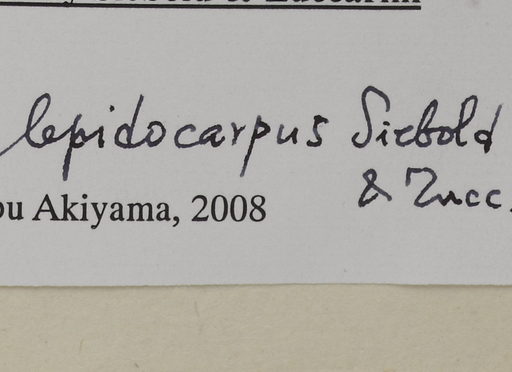 lepidocarpus Siebold
& Zucc.
Akiyama, 2008